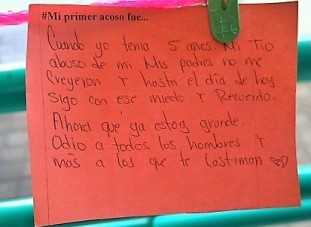 #Mi primer acoso fue...
Cuando yo tenia 5 años Mi Tio
abuso de mi Mis padres no me
Creyeron Y hasta el día de hoy
Sigo con ese miedo Y Recuerdo.
Ahora que ya estoy grande...
Odio a todos los hombres Y
mas a los que te lastiman